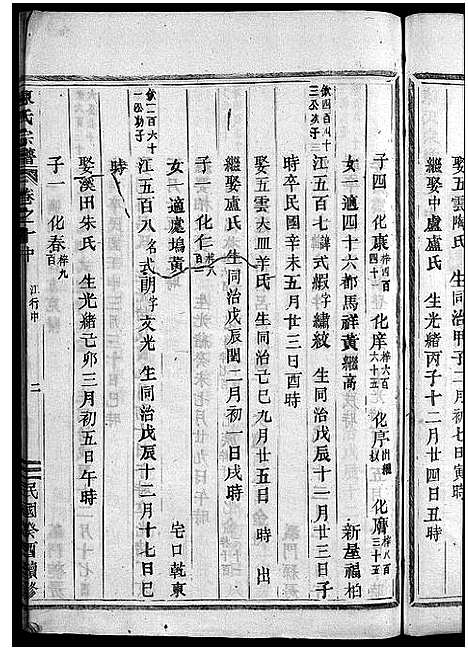 娶五雲陶氏 生同治甲子二月初七日寅時
繼娶中盧盧氏 生光緒丙子十二月廿四日丑時
子四 化康梓四百四十一 化庠梓六百六十五 化序出繼 化膺梓八百三十五
女一適四十六都馬祥黃繼高 新屋福柏
欽四百四十三公次子
江五百七 諱式嘏字繡紋 生同治戊辰十二月廿三日子
時卒民國辛未五月廿三日酉時
娶五雲大皿羊氏 生同治己巳九月廿五日 時出
繼娶盧氏 生同治戊辰閏二月初一日戌時
子一 化仁梓八百一
女一適處塢黃 宅口乾東
欽一百六十一公次子
江五百八 名式朝字文光 生同治戊辰十二月十七日巳
時
娶溪田朱氏 生光緒己卯三月初五日午時
子一 化春梓九百
陳氏宗譜 卷之一中 江行中 二 民國癸酉續修